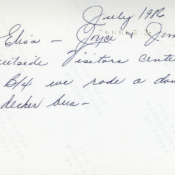 July 1986
Elsa - Joyce & Jim
outside Visitors Center
B/4 we rode a dou
decker bus -